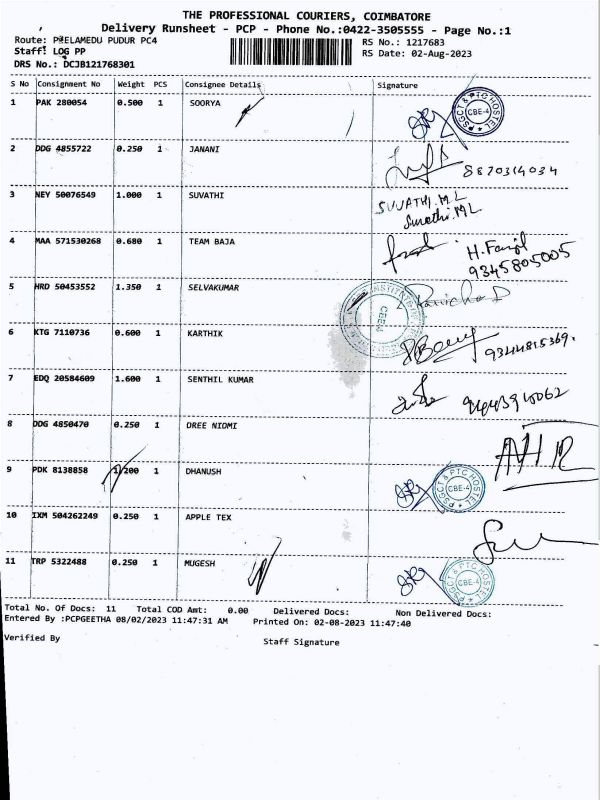 THE PROFESSIONAL COURIERS, COIMBATORE
Delivery Runsheet - PCP - Phone No.:0422-3505555 - Page No.:1
Route: PEELAMEDU PUDUR PC4
RS No.: 1217683
Staff: LOG PP
RS Date: 02-Aug-2023
DRS No.: DCJB121768301
S No Consignment No Weight PCS Consignee Details Signature
1 PAK 280054 0.500 1 SOORYA
PSGCT & PTC HOSTEL CBE-4
2 DDG 4855722 0.250 1 JANANI
8870314034
3 NEY 50076549 1.000 1 SUVATHI SUVATHI.M.L
Suvathi.ML
4 MAA 571530268 0.680 1 TEAM BAJA
9345805005
5 HRD 50453552 1.350 1 SELVAKUMAR
CBE-4
6 KTG 7110736 0.600 1 KARTHIK 9344815369.
7 EDQ 20584609 1.600 1 SENTHIL KUMAR
8 DDG 4850470 0.250 1 DREE NIDMI
9 PDK 8138858 1.200 1 DHANUSH
PSGCT & PTC HOSTEL CBE-4
10 IXM 504262249 0.250 1 APPLE TEX
11 TRP 5322488 0.250 1 MUGESH
PSGCT & PTC HOSTEL CBE-4
Total No. Of Docs: 11 Total COD Amt: 0.00 Delivered Docs: Non Delivered Docs:
Entered By :PCPGEETHA 08/02/2023 11:47:31 AM Printed On: 02-08-2023 11:47:40
Verified By Staff Signature